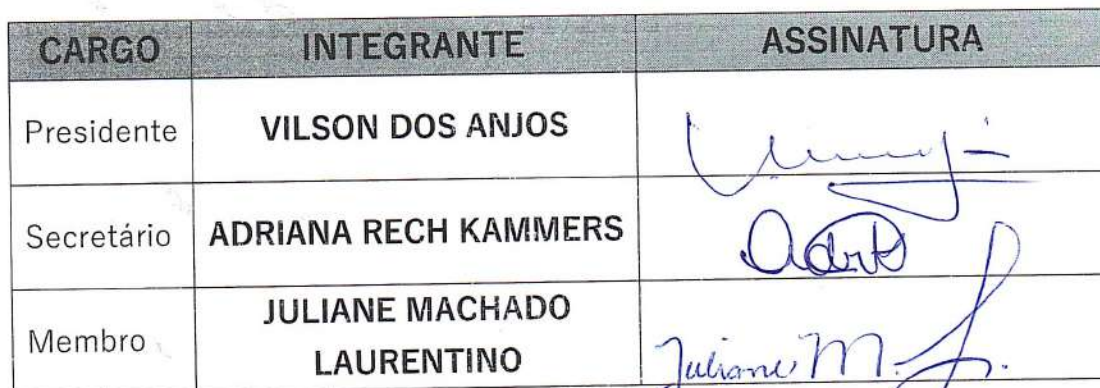 CARGO INTEGRANTE ASSINATURA
Presidente VILSON DOS ANJOS
Secretário ADRIANA RECH KAMMERS
JULIANE MACHADO
Membro
LAURENTINO Juliane M